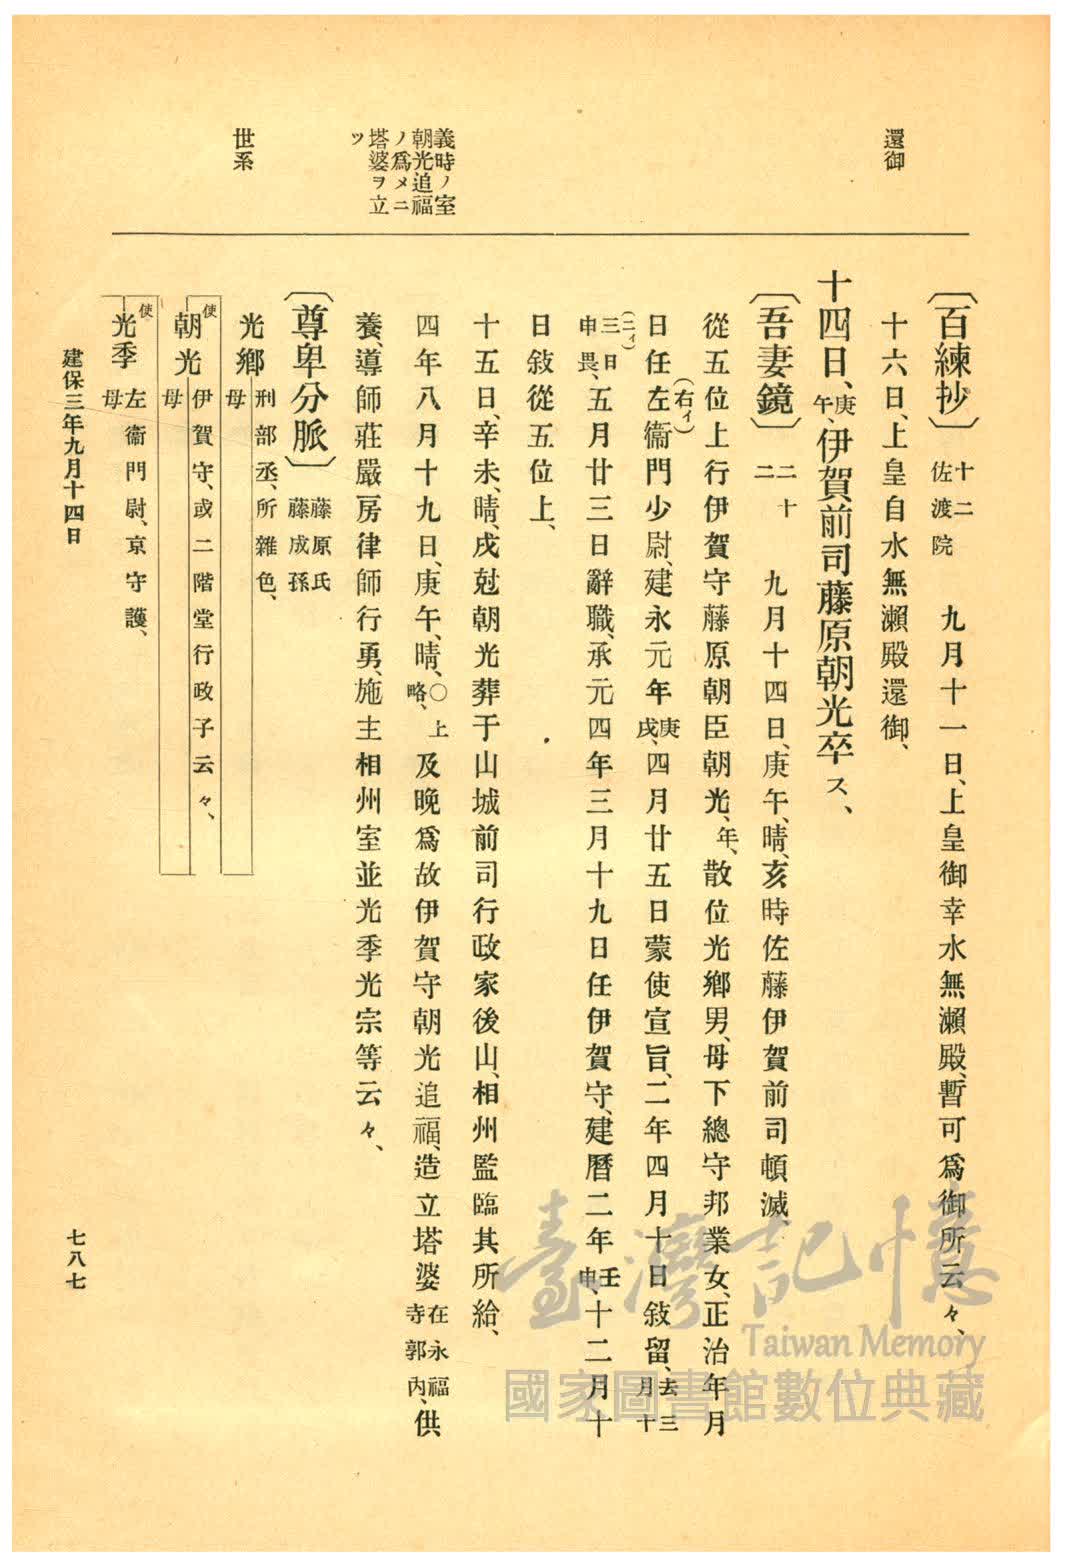 還御
義時ノ室
朝光追福
ノ爲メニ
塔婆ヲ立
ツ
世系
〔百練抄〕十二佐渡院　九月十一日、上皇御幸水無瀨殿、暫可爲御所云々、
十六日、上皇自水無瀨殿還御、
十四日、庚午、伊賀前司藤原朝光卒ス、
〔吾妻鏡〕二十二　九月十四日、庚午、晴、亥時佐藤伊賀前司頓滅、
從五位上行伊賀守藤原朝臣朝光、年、散位光鄕男、母下總守邦業女、正治年月
日任左(右イ)衞門少尉、建永元年庚戌、四月廿五日蒙使宣旨、二年四月十日敍留、去三月十
三(二イ)日申畏、五月廿三日辭職、承元四年三月十九日任伊賀守、建曆二年壬申、十二月十
日敍從五位上、
十五日、辛未、晴、戌尅朝光葬于山城前司行政家後山、相州監臨其所給、
四年八月十九日、庚午、晴、〇上略、及晚爲故伊賀守朝光追福、造立塔婆在永福寺郭內、供
養、導師莊嚴房律師行勇、施主相州室並光季光宗等云々、
〔尊卑分脈〕藤原氏藤成孫
光鄕　刑部丞、所雜色、
母
使
朝光　伊賀守、或二階堂行政子云々、
母
使
光季　左衞門尉、京守護、
母
建保三年九月十四日
七八七
臺灣記憶
Taiwan Memory
國家圖書館數位典藏